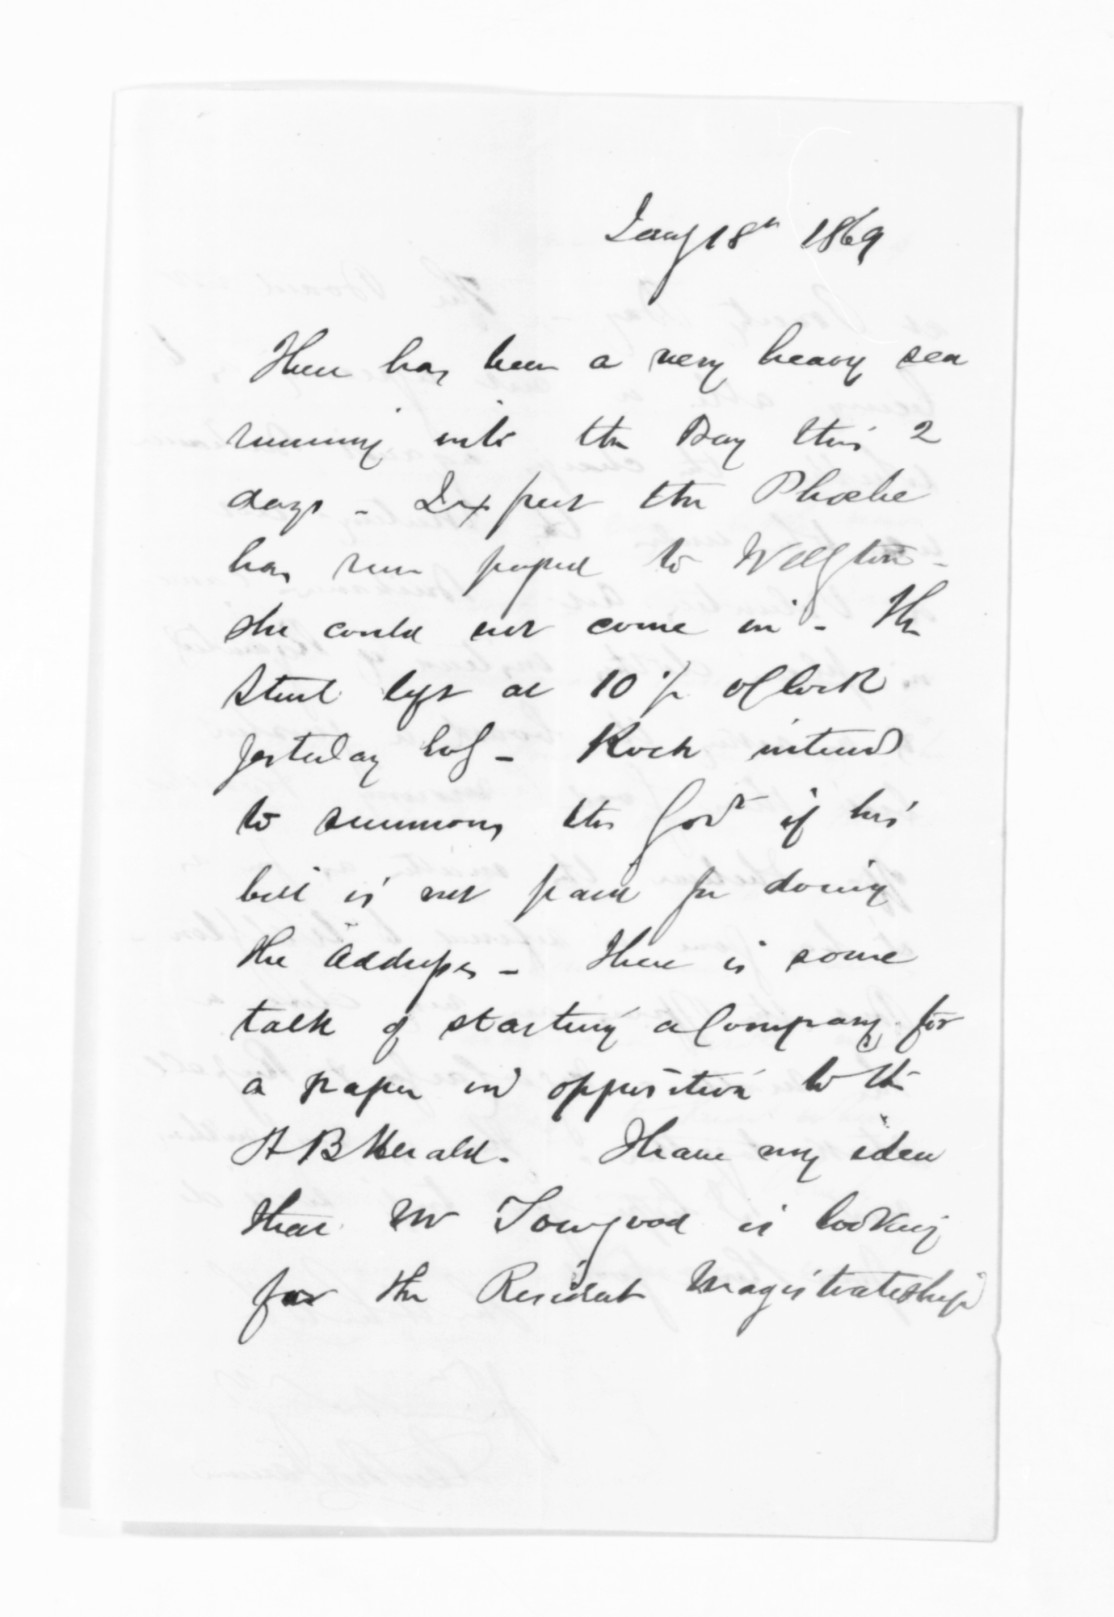 Jany 18th 1869
There has been a very heavy sea
running into the Bay this 2
days - Expect the Phoebe
has run passed to Wellgton -
she could not come in - The
Sturt left at 10 o'Clock
yesterday - Rock intend
to summons the Govt if his
bill is not paid for doing
the addresses - There is some
talk of starting a Company for
a paper in opposition to the
H B Herald. I have my idea
that Mr Towgood is looking
for the Resident Magistrateship